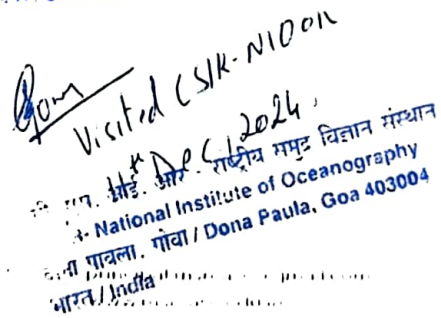 Visited CSIR-NIO on
11th Dec, 2024,
आई. ओ. राष्ट्रीय समुद्र विज्ञान संस्थान
- National Institute of Oceanography
पावला, गोवा / Dona Paula, Goa 403004
भारत / India